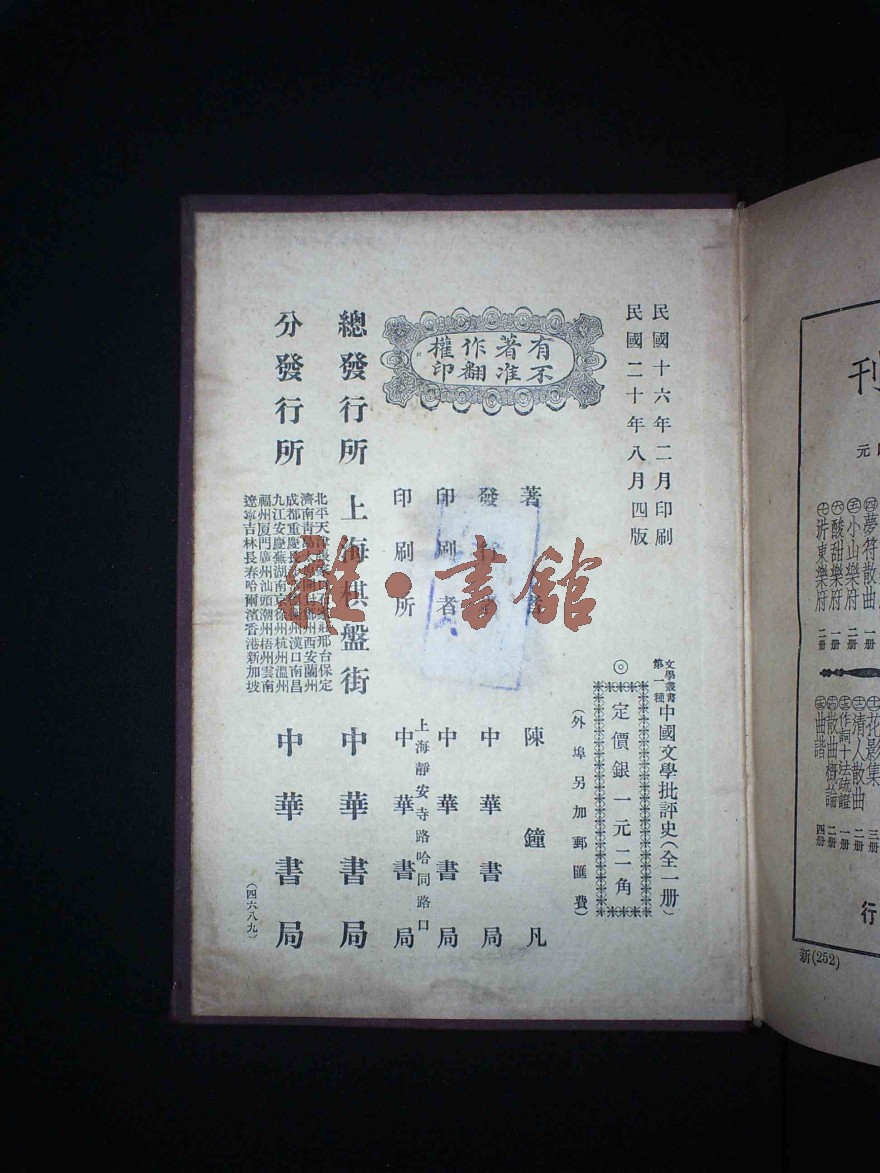 民國十六年二月印刷
民國二十年八月四版
文學叢書
第一種
中國文學批評史(全一册)
◎定價銀一元二角
(外埠另加郵匯費)
有著作權
不准翻印
著者 陳鐘凡
發行者 中華書局
印刷者 中華書局
上海靜安寺路哈同路口
印刷所 中華書局
總發行所 上海棋盤街 中華書局
分發行所 中華書局
北平天津
邢台保定
濟南青島
西安蘭州
成都重慶
漢口南昌
九江安慶蕪湖南京徐州杭州溫州
福州厦門廣州汕頭潮州梧州雲南
遼寧吉林長春哈爾濱香港新加坡
(四六八九)
雜·書館
刊
元
夢符散曲
小山樂府 二册
酸甜樂府 一册
浒東樂府 二册
花影集
清人散曲 二册
作詞十法疏證 一册
散曲概論 二册
曲譜 四册
行
新(252)